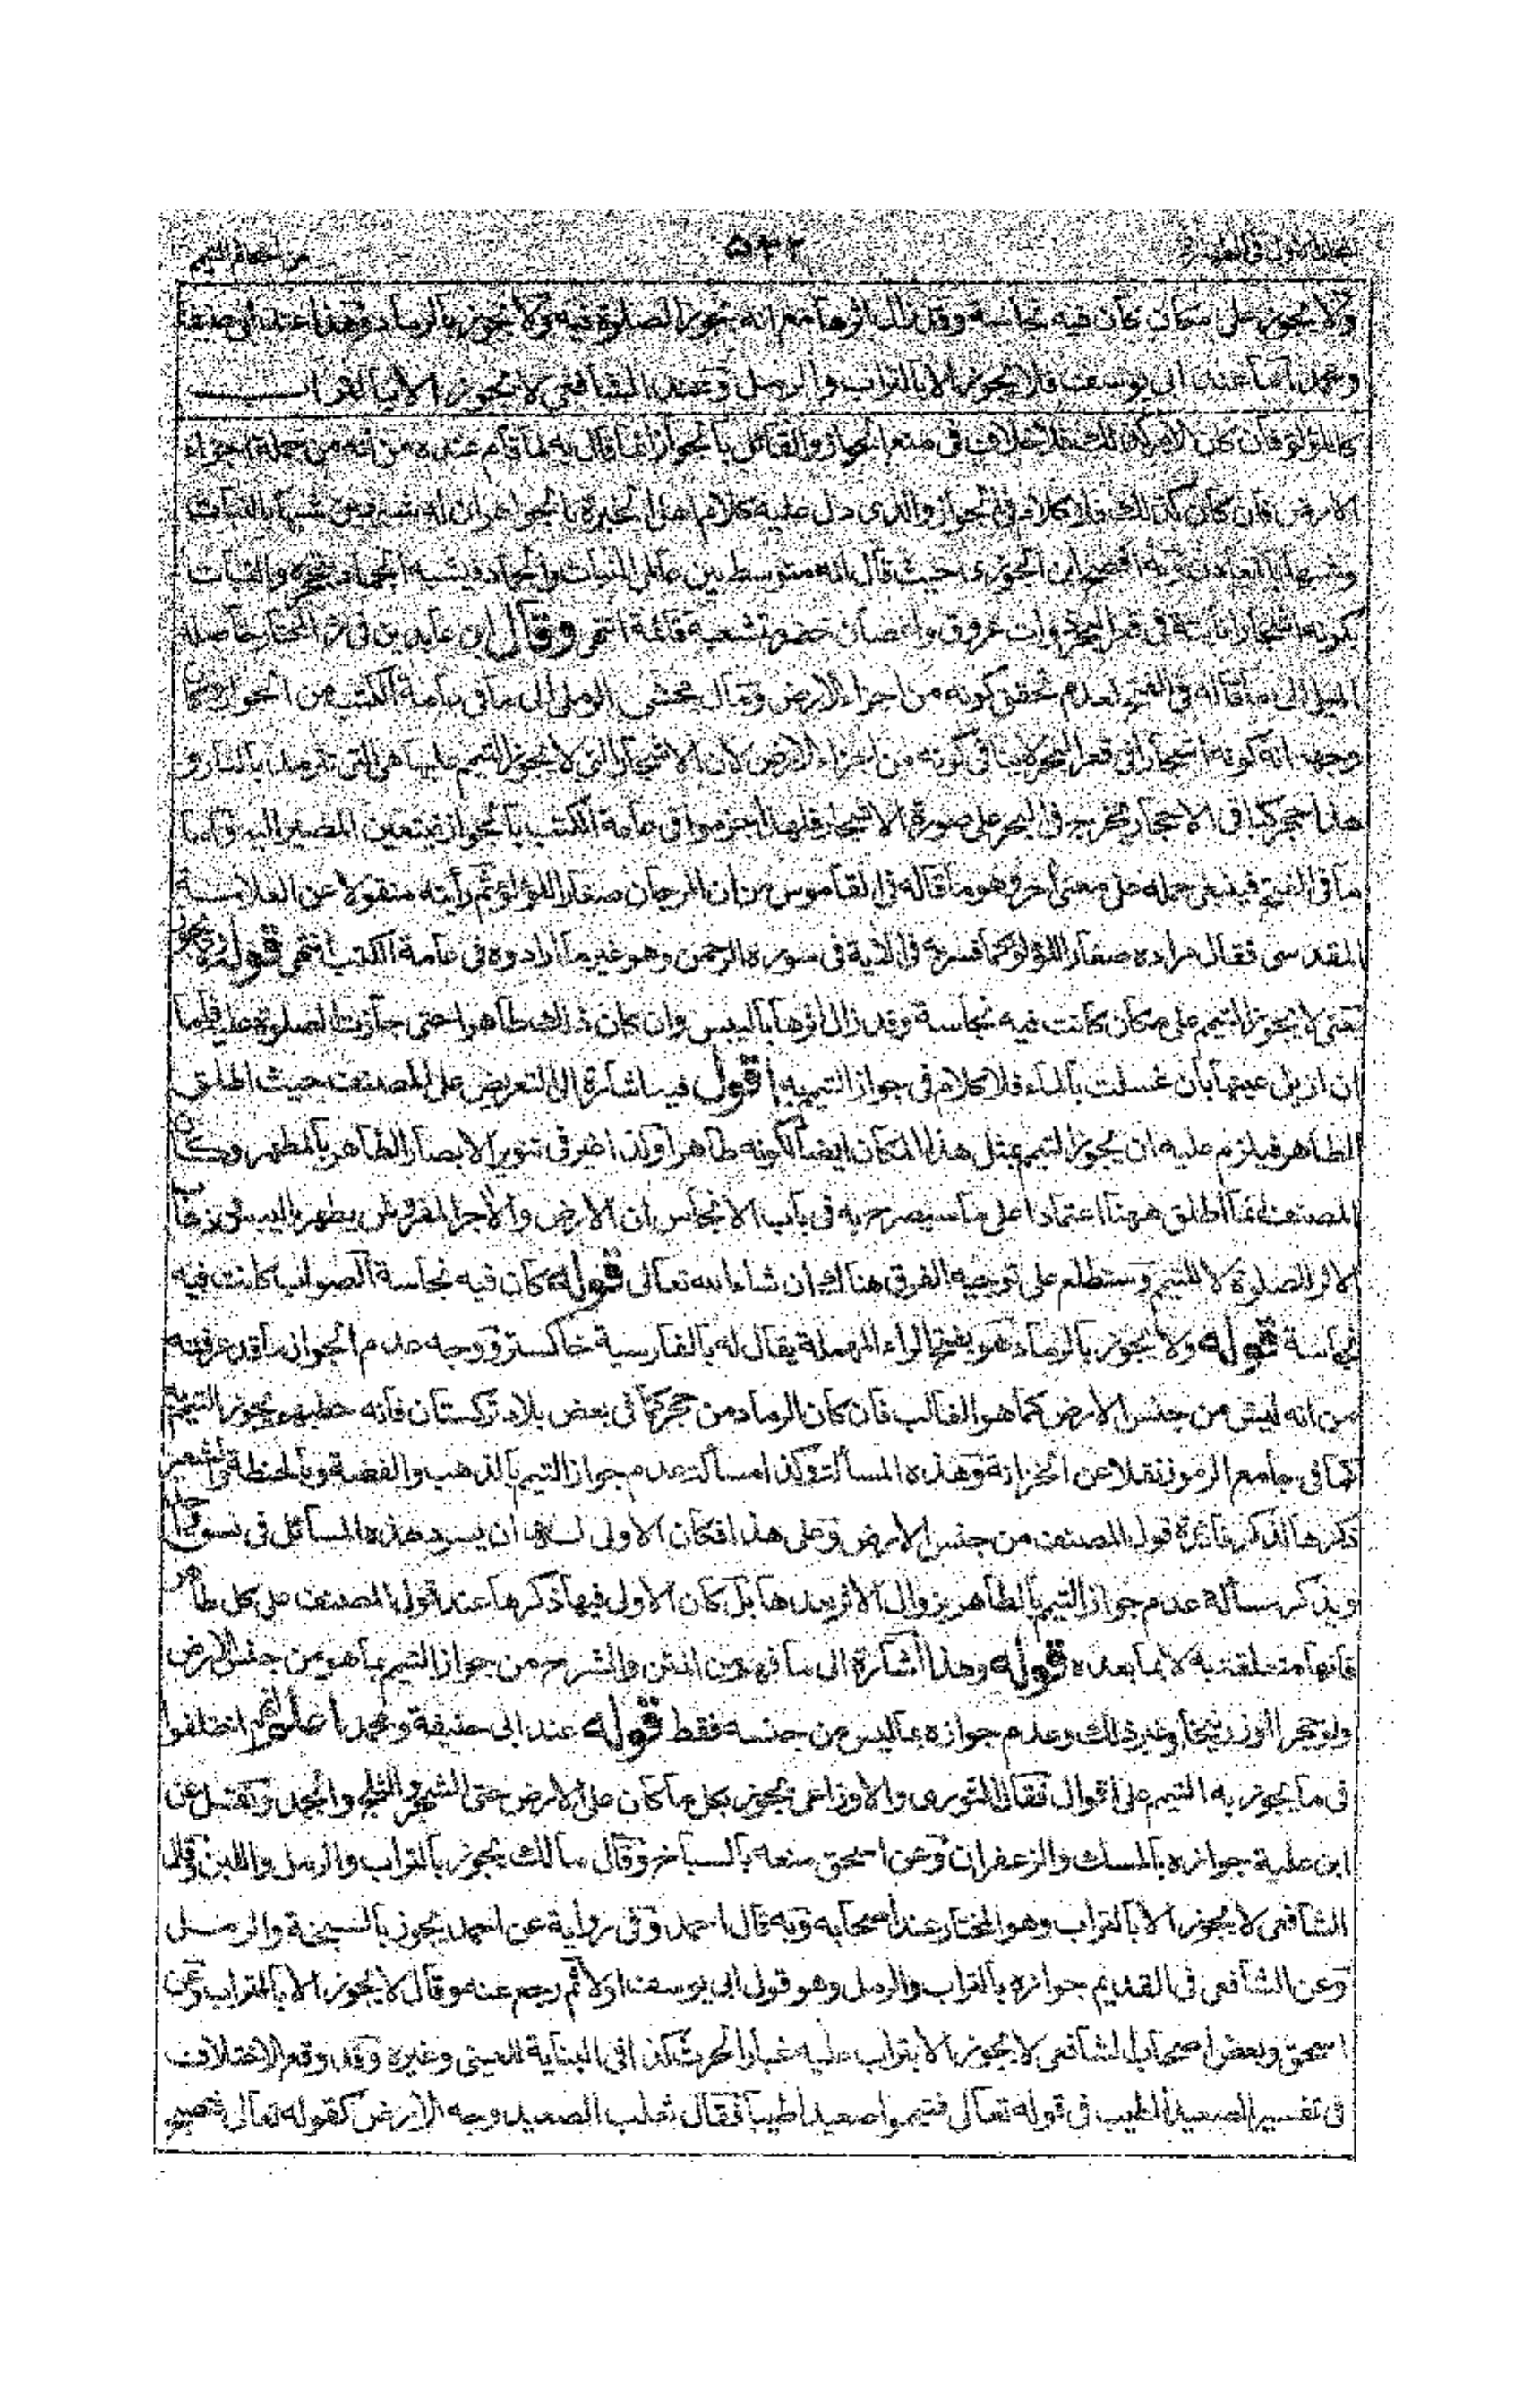 ٥٣٢
ولا يجوز على مكان كان فيه نجاسة وقد زال اثرها مع انه يجوز الصلوة فيه ولا يجوز بالرماد وهذا عند ابي حنيفة
ومحمد اما عند ابي يوسف فلا يجوز الا بالتراب والرمل وعند الشافعي لا يجوز الا بالتراب
كاللؤلؤ فان كان الامر كذلك فلا خلاف في منع الجواز والقائل بالجواز انما قال به لما قام عنده من انه من جملة اجزاء
الارض فان كان كذلك فلا كلام في الجواز والذي دل عليه كلام اهل الخبرة بالجواهر ان له شبهين شبها بالنبات
وشبها بالمعادن وبه افصح ابن الجوزي حيث قال انه متوسط بين عالمي النبات والجماد فيشبه الجماد بتحجره والنبات
بكونه اشجارا نابتة في قعر البحر ذوات عروق واغصان خضر متشعبة قائمة انتهى وقال ابن عابدين في رد المحتار حاصله
الميل الى ما قاله في الفتح لعدم تحقق كونه من اجزاء الارض ومال محشي الرملي الى ما في عامة الكتب من الجواز وكان
وجهه ان كونه اشجارا في قعر البحر لا ينافي كونه من اجزاء الارض لان الاشجار التي لا يجوز التيمم عليها هي التي تترمد بالنار و
هذا حجر كباقي الاحجار يخرج في البحر على صورة الاشجار فلهذا جزموا في عامة الكتب بالجواز فيتعين المصير اليه واما
ما في الفتح فينبغي حمله على معنى آخر وهو ما قاله في القاموس من ان المرجان صغار اللؤلؤ ثم رأيته منقولا عن العلامة
المقدسي فقال مراده صغار اللؤلؤ كما فسر به في الآية في سورة الرحمن وهو غير ما ارادوه في عامة الكتب انتهى قوله ولا يجوز
يعني لا يجوز التيمم على مكان كانت فيه نجاسة وقد زال اثرها باليبس وان كان ذلك طاهرا حتى جازت الصلوة عليه فاما
ان ازيل عينها بان غسلت بالماء فلا كلام في جواز التيمم به اقول فيه اشارة الى التعريض على المصنف حيث اطلق
الطاهر فيلزم عليه ان يجوز التيمم بمثل هذا المكان ايضا لكونه طاهرا ولذا غير في تنوير الابصار الطاهر بالمطهر وكان
المصنف انما اطلق ههنا اعتمادا على ما سيصرح به في باب الانجاس ان الارض والآجر المفروش يطهر باليبس وذهاب
الاثر للصلوة لا للتيمم وستطلع على توجيه الفرق هناك ان شاء الله تعالى قوله كان فيه نجاسة الصواب كانت فيه
نجاسة قوله ولا يجوز بالرماد هو بفتح الراء المهملة يقال له بالفارسية خاكستر ووجه عدم الجواز ما قد عرفته
من انه ليس من جنس الارض كما هو الغالب فان كان الرماد من حجر كما في بعض بلاد تركستان فانه حطبهم يجوز التيمم
كما في جامع الرموز نقلا عن الخزانة وهذه المسألة وكذا مسألة عدم جواز التيمم بالذهب والفضة وبالحنطة والشعير
ذكرها لذكر فائدة قول المصنف من جنس الارض وعلى هذا فكان الاولى ان يسرد هذه المسائل في نسق واحد
ويذكر مسألة عدم جواز التيمم بالطاهر بزوال الاثر بعدها بل كان الاولى فيها ذكرها عند قول المصنف على كل طاهر
فانها متعلقة به لا بما بعده قوله وهذا اشارة الى ما فهم من المتن والشرح من جواز التيمم بما هو من جنس الارض
ولو حجرا او زرنيخا وغير ذلك وعدم جوازه بما ليس من جنسه فقط قوله عند ابي حنيفة ومحمد اعلم انهم اختلفوا
في ما يجوز به التيمم على اقوال فقال الثوري والاوزاعي يجوز بكل ما كان على الارض حتى الشجر والثلج والجمد ونقل عن
ابن علية جوازه بالمسك والزعفران وعن اسحق منعه بالسباخ وقال مالك يجوز بالتراب والرمل واللبن وقال
الشافعي لا يجوز الا بالتراب وهو المختار عند اصحابه وبه قال احمد وفي رواية عن احمد يجوز بالسبخة والرمل
وعن الشافعي في القديم جوازه بالتراب والرمل وهو قول ابي يوسف اولا ثم رجع عنه وقال لا يجوز الا بالتراب وعن
اسحق وبعض اصحاب الشافعي لا يجوز الا بتراب عليه غبار الحرث كذا في البناية للعيني وغيره وقد وقع الاختلاف
في تفسير الصعيد الطيب في قوله تعالى فتيمموا صعيدا طيبا فقال ثعلب الصعيد وجه الارض كقوله تعالى فتصبح